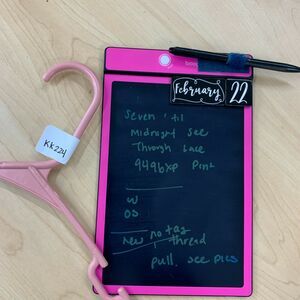 February 22
Seven 'til
Midnight See
Through Lace
9496XP Pink
W
OS
new no tag
thread
pull, see pics
KK224